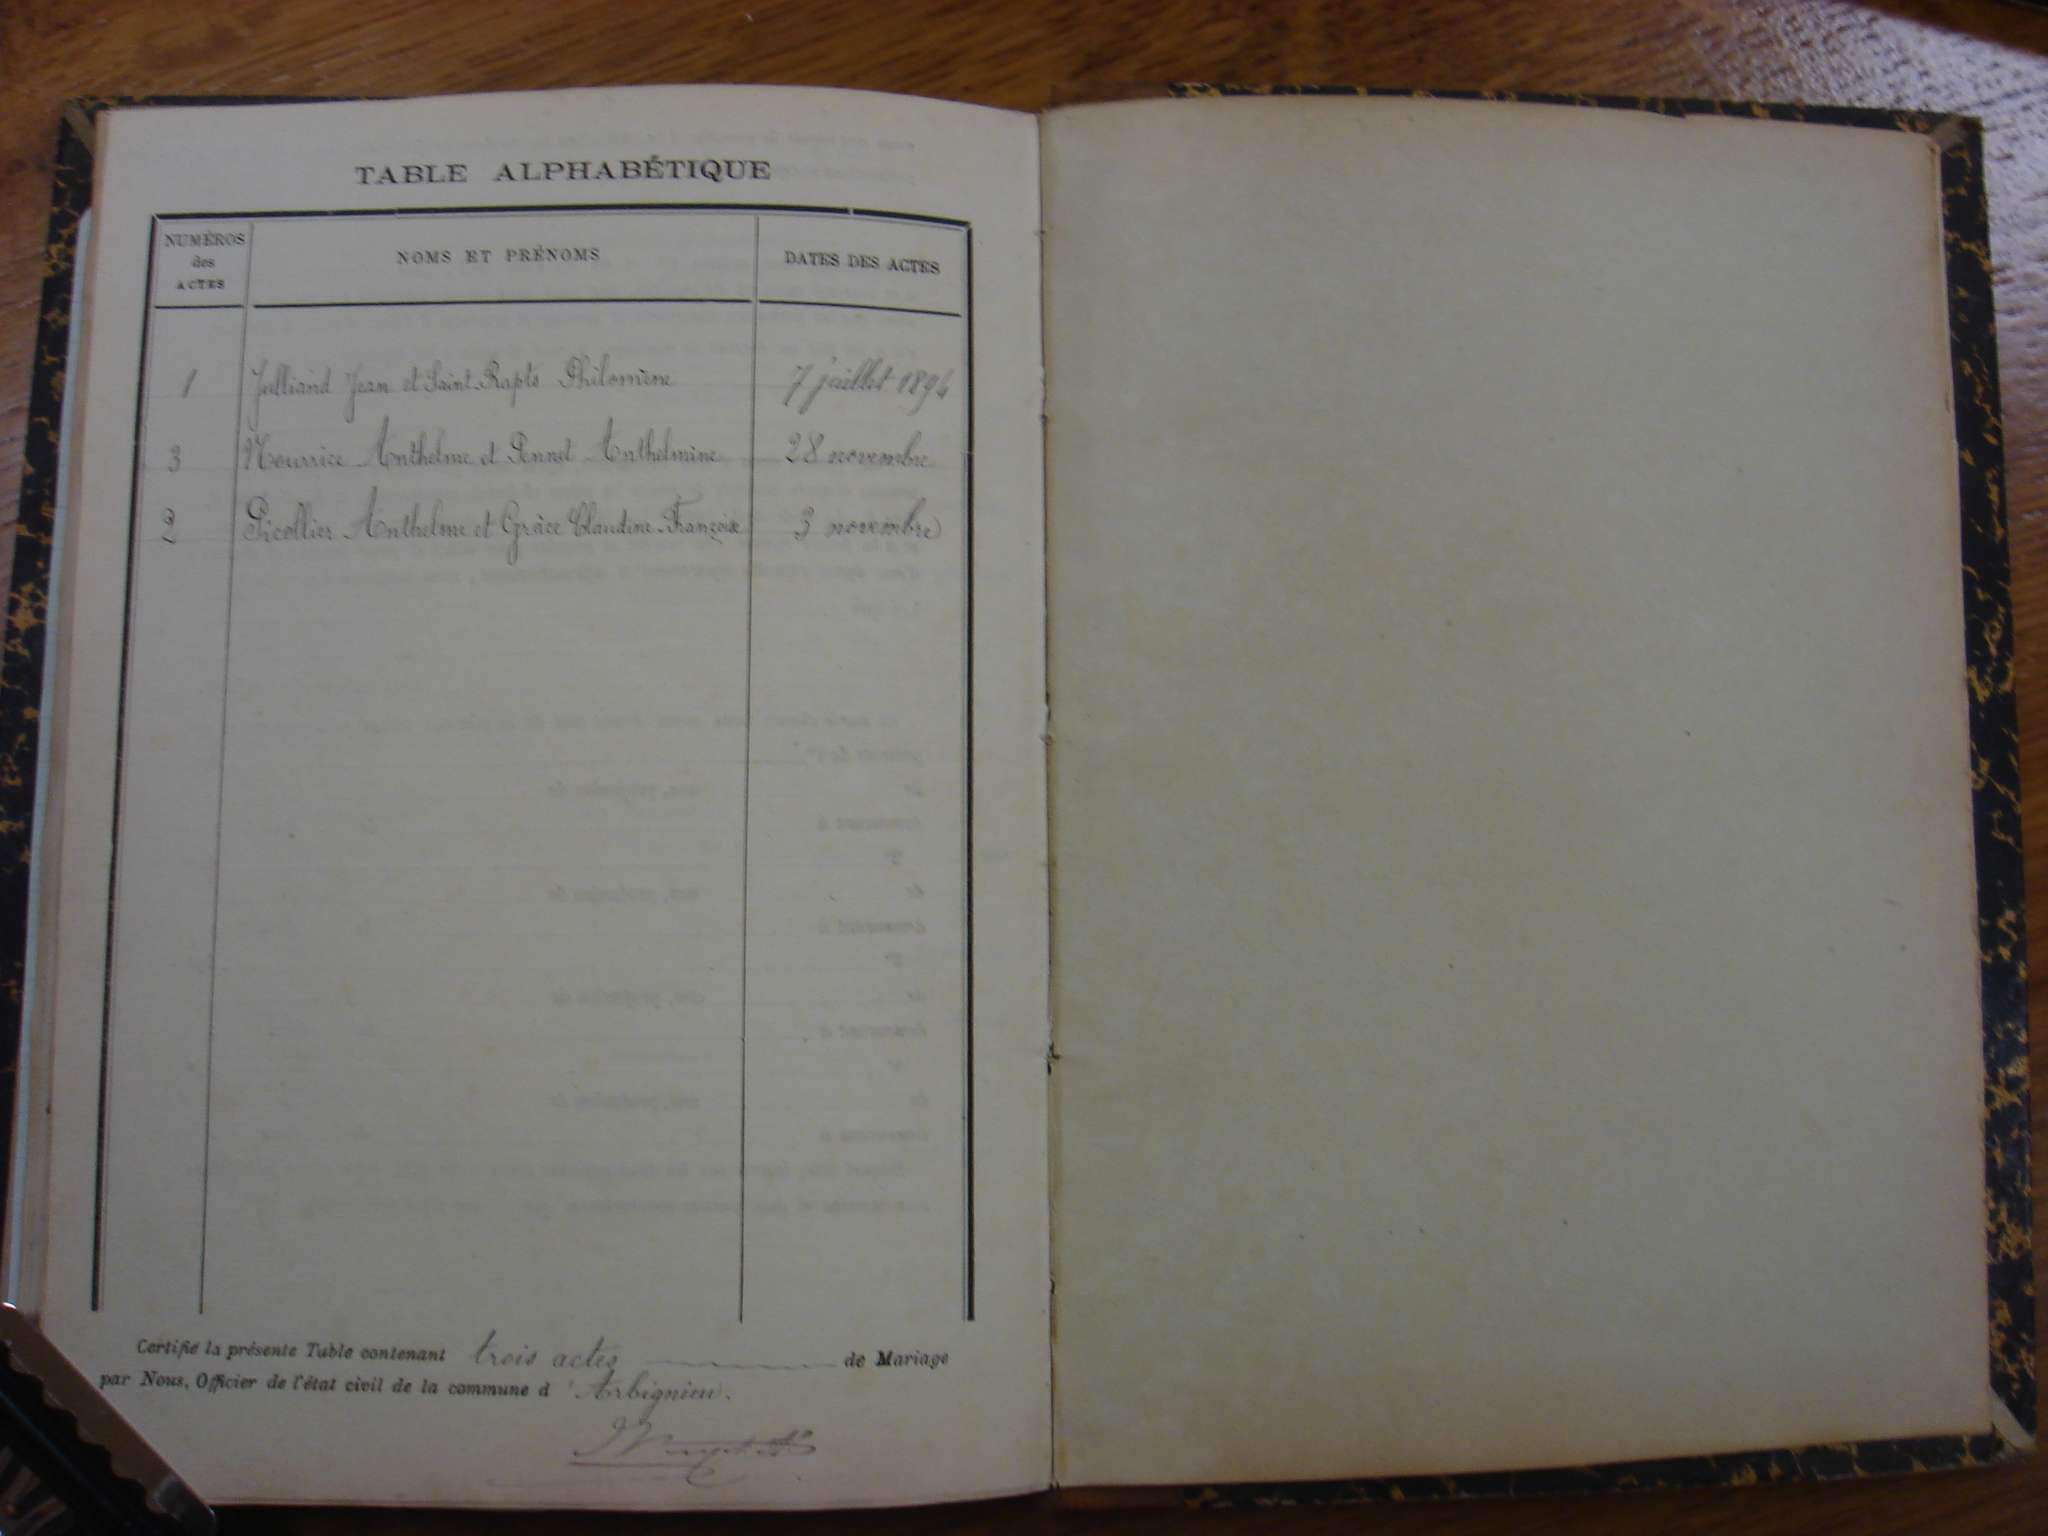 TABLE ALPHABÉTIQUE
NUMÉROS
des
ACTES
NOMS ET PRÉNOMS
DATES DES ACTES
1 Julliand Jean et Saint-Rapts Philomène 7 juillet 1894
3 Nourrice Anthelme et Pennet Anthelmine 28 novembre
2 Picollier Anthelme et Grâce Claudine-Françoise 3 novembre
Certifié la présente Table contenant trois actes de Mariage
par Nous, Officier de l'état civil de la commune d'Arbignieu.